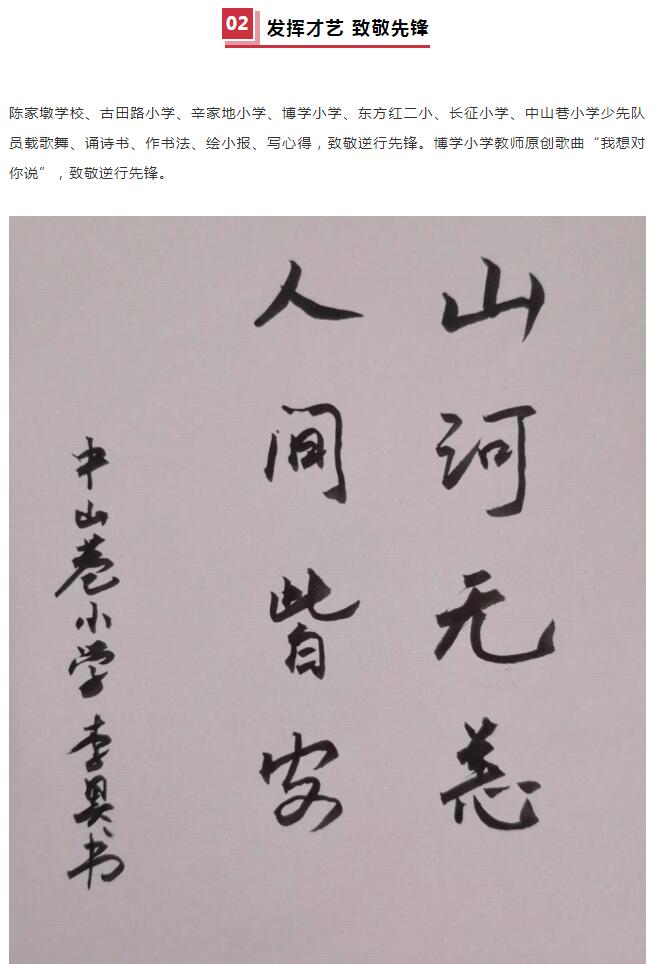 02
发挥才艺 致敬先锋
陈家墩学校、古田路小学、辛家地小学、博学小学、东方红二小、长征小学、中山巷小学少先队
员载歌舞、诵诗书、作书法、绘小报、写心得，致敬逆行先锋。博学小学教师原创歌曲“我想对
你说”，致敬逆行先锋。
山河无恙
人间皆安
中山巷小学 李昊书